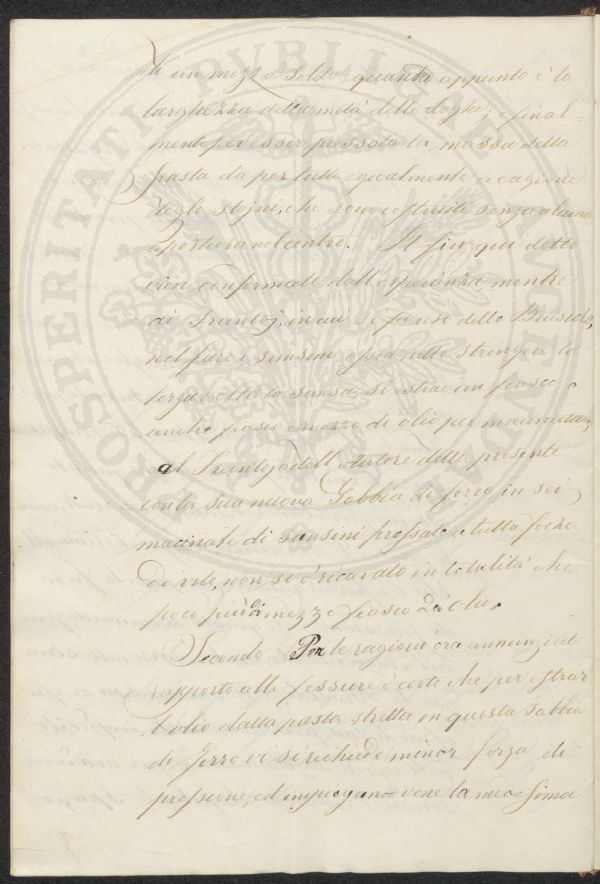 di un mezzo soldo, quanta appunto è la
larghezza della metà delle doghe; e final-
mente per esser pressata la massa della
pasta da per tutto egualmente a cagione
degli stojni, che sono costruiti senza alcuna
apertura nel centro. Il fin qui detto
vien confermato dall'esperienza, mentre
ai Frantoj, in cui si fa uso delle Bruscole,
nel fare i sansini, ossia nello stringere la
terza volta la sansa, si estrae un fiasco, o
anche fiasco e mezzo di olio per macinata;
al Frantojo dell'autore della presente
con la sua nuova Gabbia di ferro, in sei
macinate di sansini pressate a tutta forza
di rete, non si è ricavato in totalità che
poco più di mezzo fiasco di olio.
Secondo. Per le ragioni ora annunziate
rapporto alle fessure è certo che per estrar
l'olio dalla pasta stretta in questa Gabbia
di ferro vi si richiede minor forza di
pressione, ed impiegandovene la medesima
PROSPERITATI PVBLICAE AVGENDAE